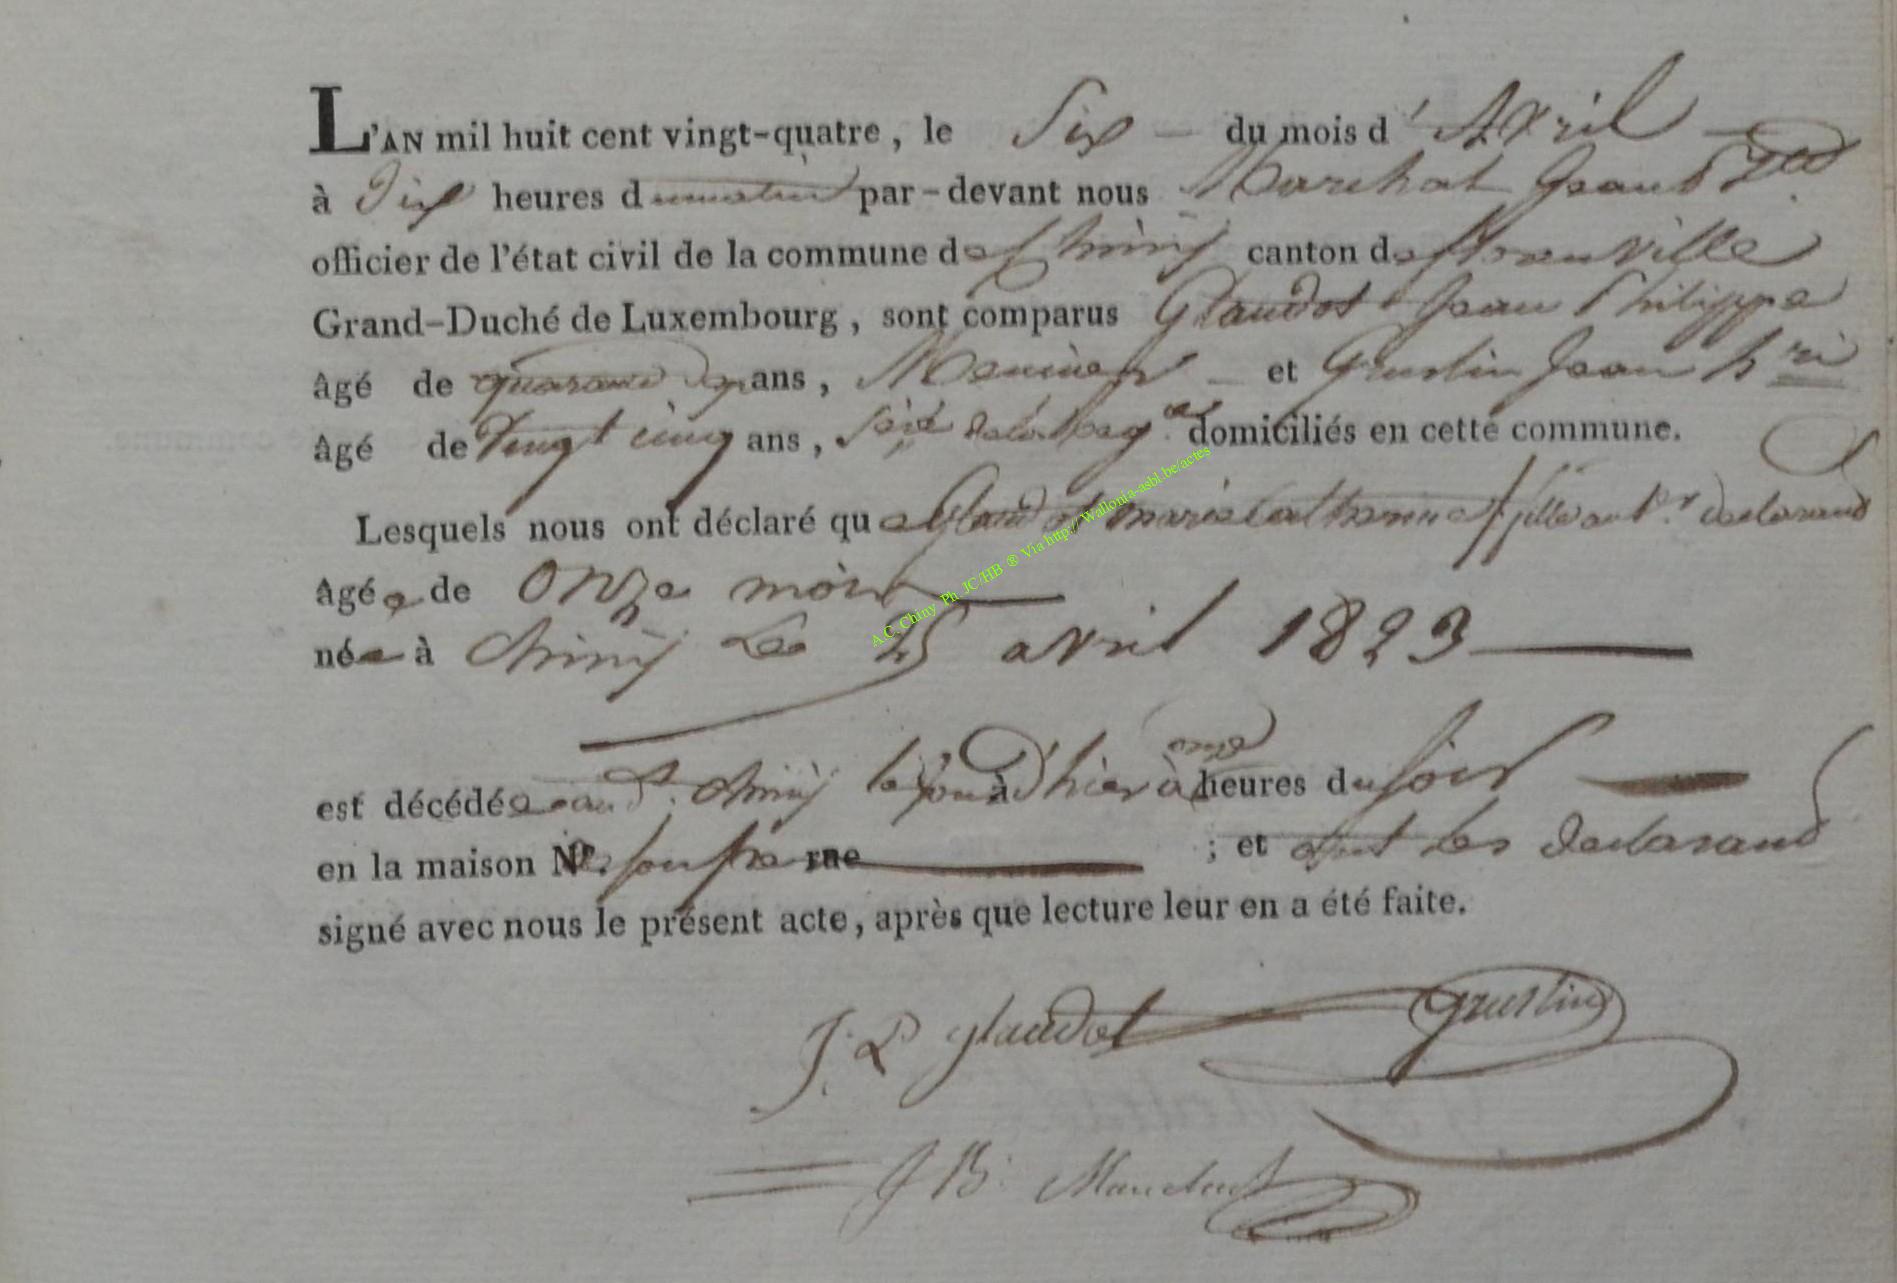 L'AN mil huit cent vingt-quatre, le Six — du mois d'Avril —
à Dix heures du matin par-devant nous Marchat Jean Bte
officier de l'état civil de la commune de Chiny canton de florenville
Grand-Duché de Luxembourg, sont comparus Glaudot Jean Philippe
âgé de quarante ans, — et Grustin Jean hri
âgé de Vingt cinq ans, domiciliés en cette commune.
Lesquels nous ont déclaré que Glaudot marie Catherine fille au pr declarand
âgée de Onze mois —
née à Chiny Le 25 avril 1823 —
est décédée aud. Chiny le jour d'hier à onze heures du soir —
en la maison No. rue ; et ont les declarand
signé avec nous le présent acte, après que lecture leur en a été faite.
J. P glaudot Grustin
J B. Marchat
A.C. Chiny Ph. JC/HB ® Via http://Wallonia-asbl.be/actes